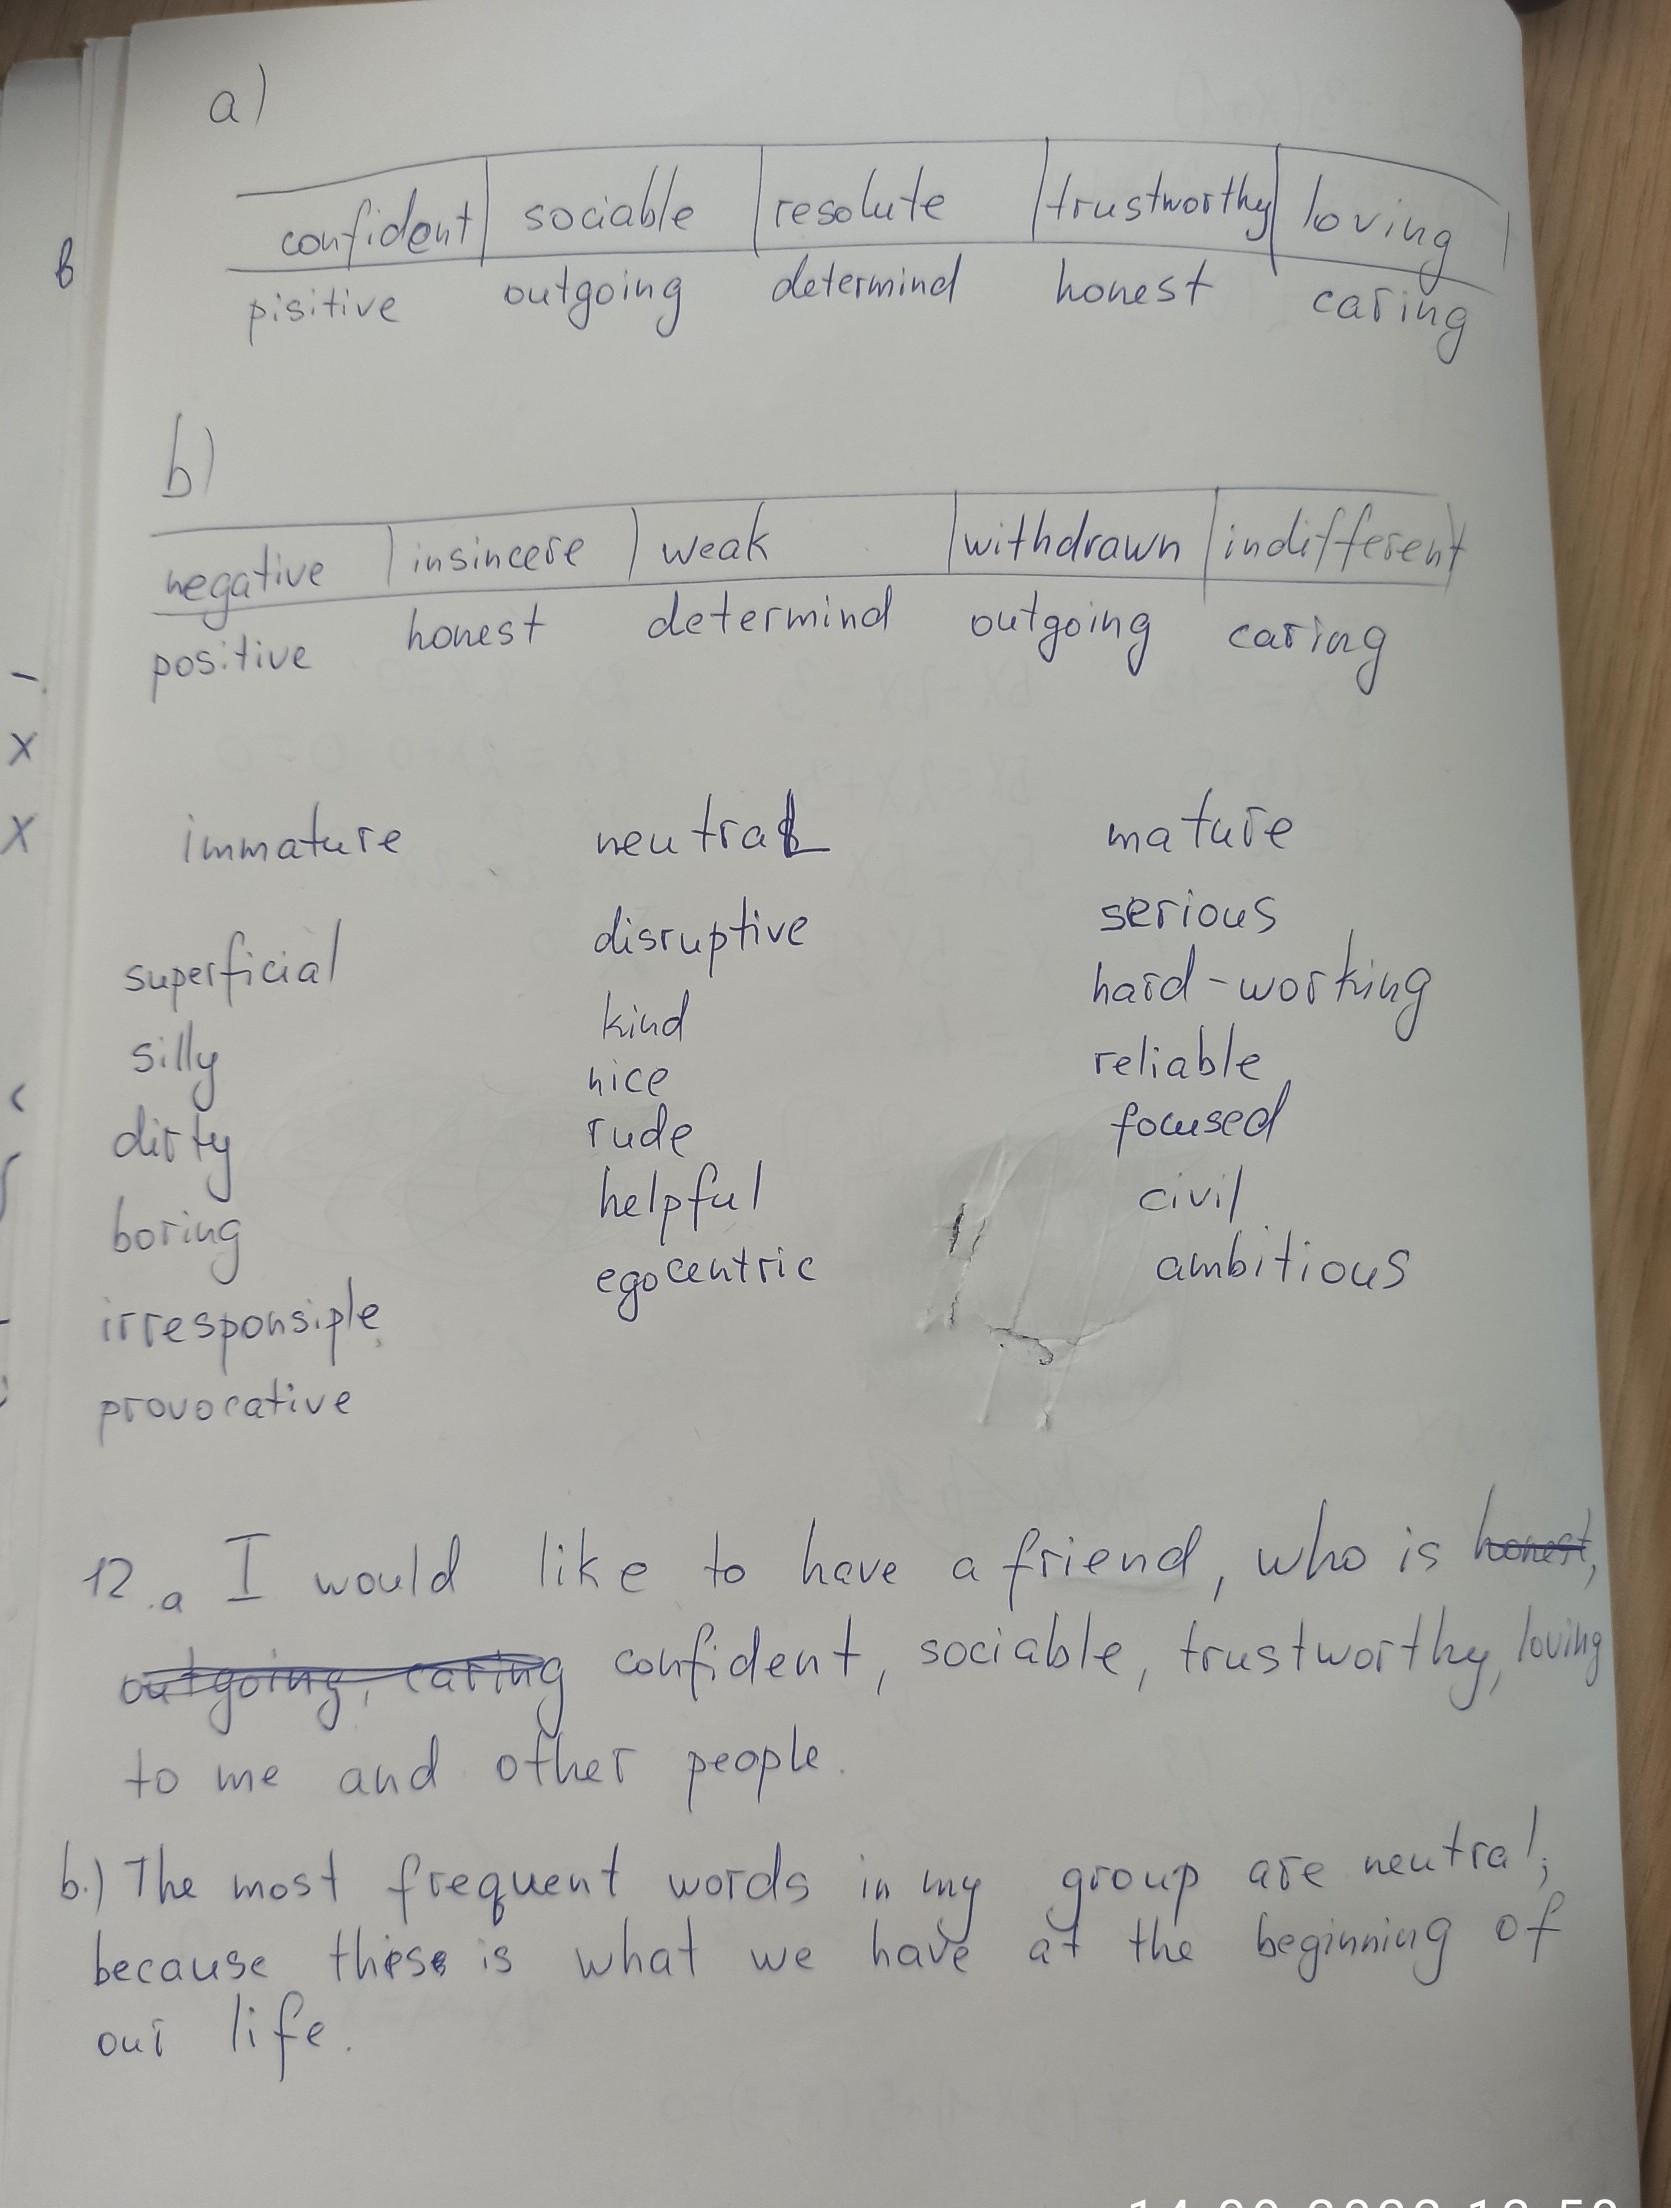 a)
confident sociable resolute trustworthy loving
pisitive outgoing determind honest caring
b)
negative insincere weak withdrawn indifferent
positive honest determind outgoing caring
immature neutral mature
superficial disruptive serious
silly kind hard-working
dirty nice reliable
boring rude focused
irresponsiple helpful civil
provocative egocentric ambitious
12.a I would like to have a friend, who is honest,
outgoing, caring confident, sociable, trustworthy, loving
to me and other people.
b.) The most frequent words in my group are neutral,
because these is what we have at the beginning of
our life.